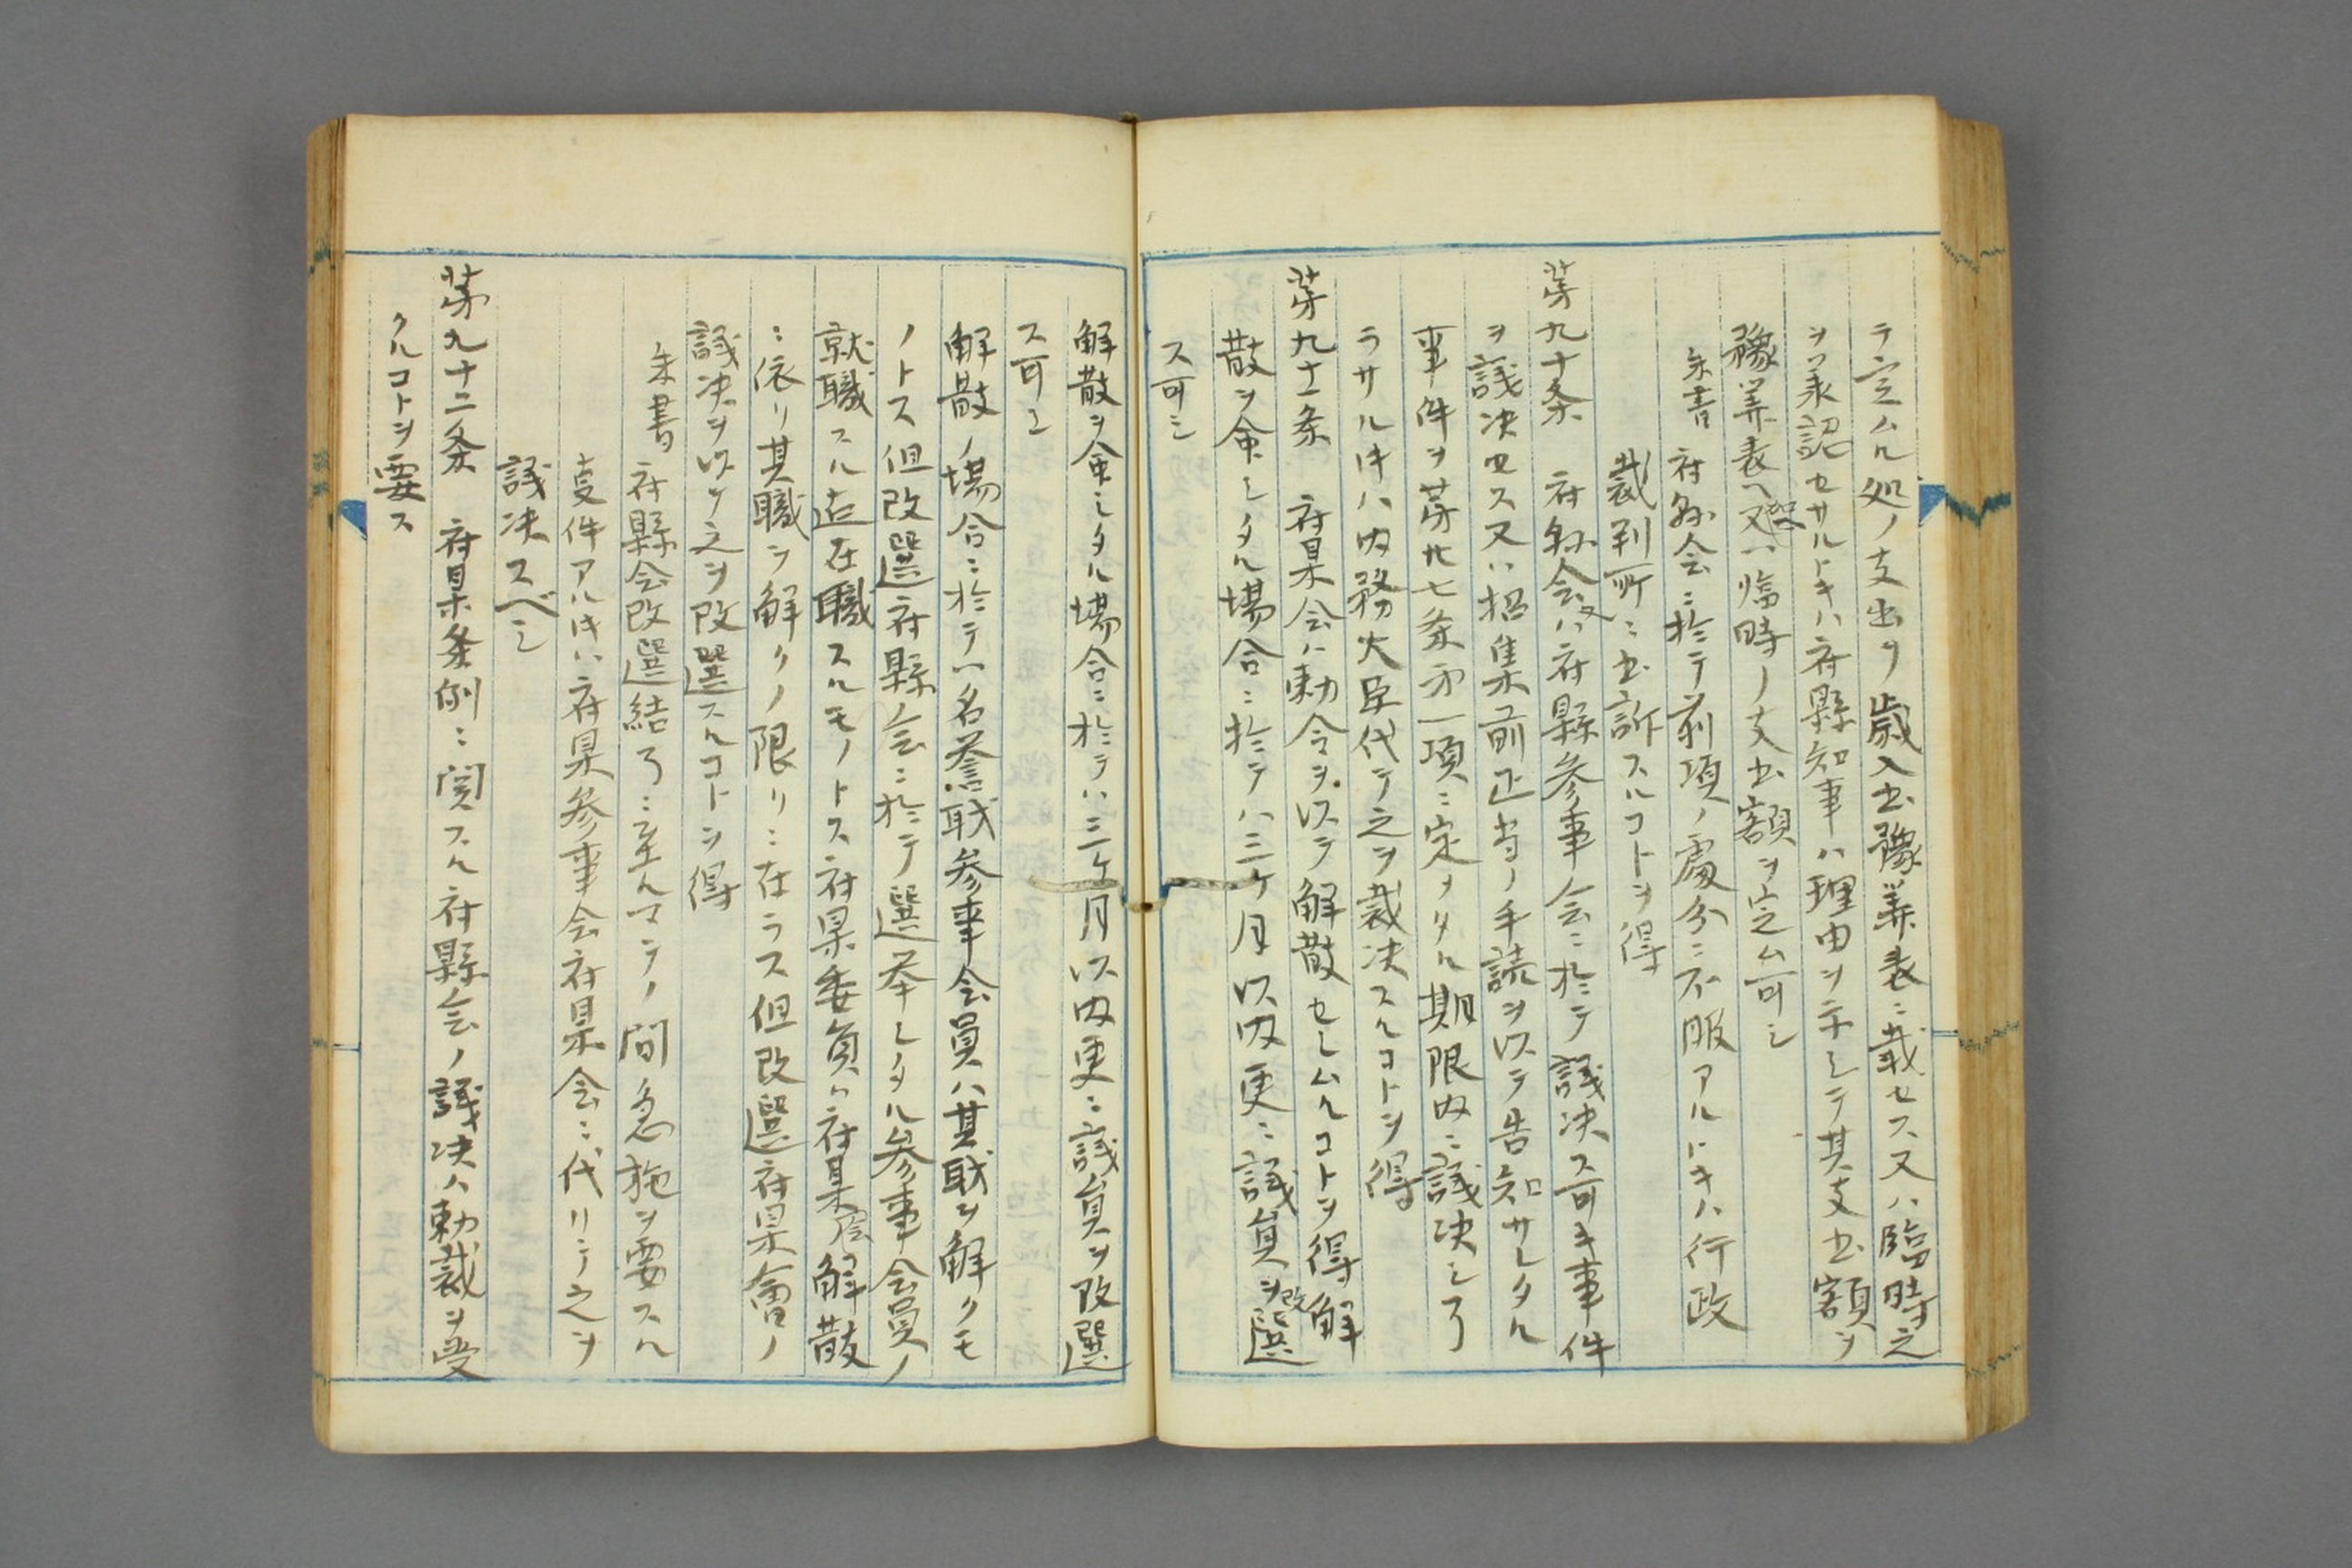 テ定ムル処ノ支出ヲ歳入出豫算表ニ載セス又ハ臨時之
ヲ承認セサルトキハ府縣知事ハ理由ヲ示シテ其支出額ヲ
豫算表ヘ又ハ臨時ノ支出額ヲ定ム可シ
朱書 府縣会ニ於テ前項ノ處分ニ不服アルトキハ行政
裁判所ニ出訴スルコトヲ得
第九十条 府縣会又ハ府縣参事会ニ於テ議決ス可キ事件
ヲ議決セス又ハ招集前正当ノ手続ヲ以テ告知サレタル
事件ヲ第卅七条第一項ニ定メタル期限内ニ議決シ了
ラサル𪜈ハ内務大臣代テ之ヲ裁決スルコトヲ得
第九十一条 府県会ハ勅令ヲ以テ解散セシムルコトヲ得解
散ヲ命シタル場合ニ於テハ三ケ月以内更ニ議員ヲ改選
ス可シ
解散ヲ命シタル場合ニ於テハ三ケ月以内更ニ議員ヲ改選
ス可シ
解散ノ場合ニ於テハ名誉職参事会員ハ其職ヲ解クモ
ノトス但改選府縣会ニ於テ選挙シタル参事会員ノ
就職スル迄在職スルモノトス府県委員ハ府県会解散
ニ依リ其職ヲ解クノ限リニ在ラス但改選府県會ノ
議決ヲ以テ之ヲ改選スルコトヲ得
朱書 府縣会改選結了ニ至ルマテノ間急施ヲ要スル
事件アル𪜈ハ府県参事会府県会ニ代リテ之ヲ
議決スベシ
第九十二条 府県条例ニ関スル府縣会ノ議決ハ勅裁ヲ受
クルコトヲ要ス